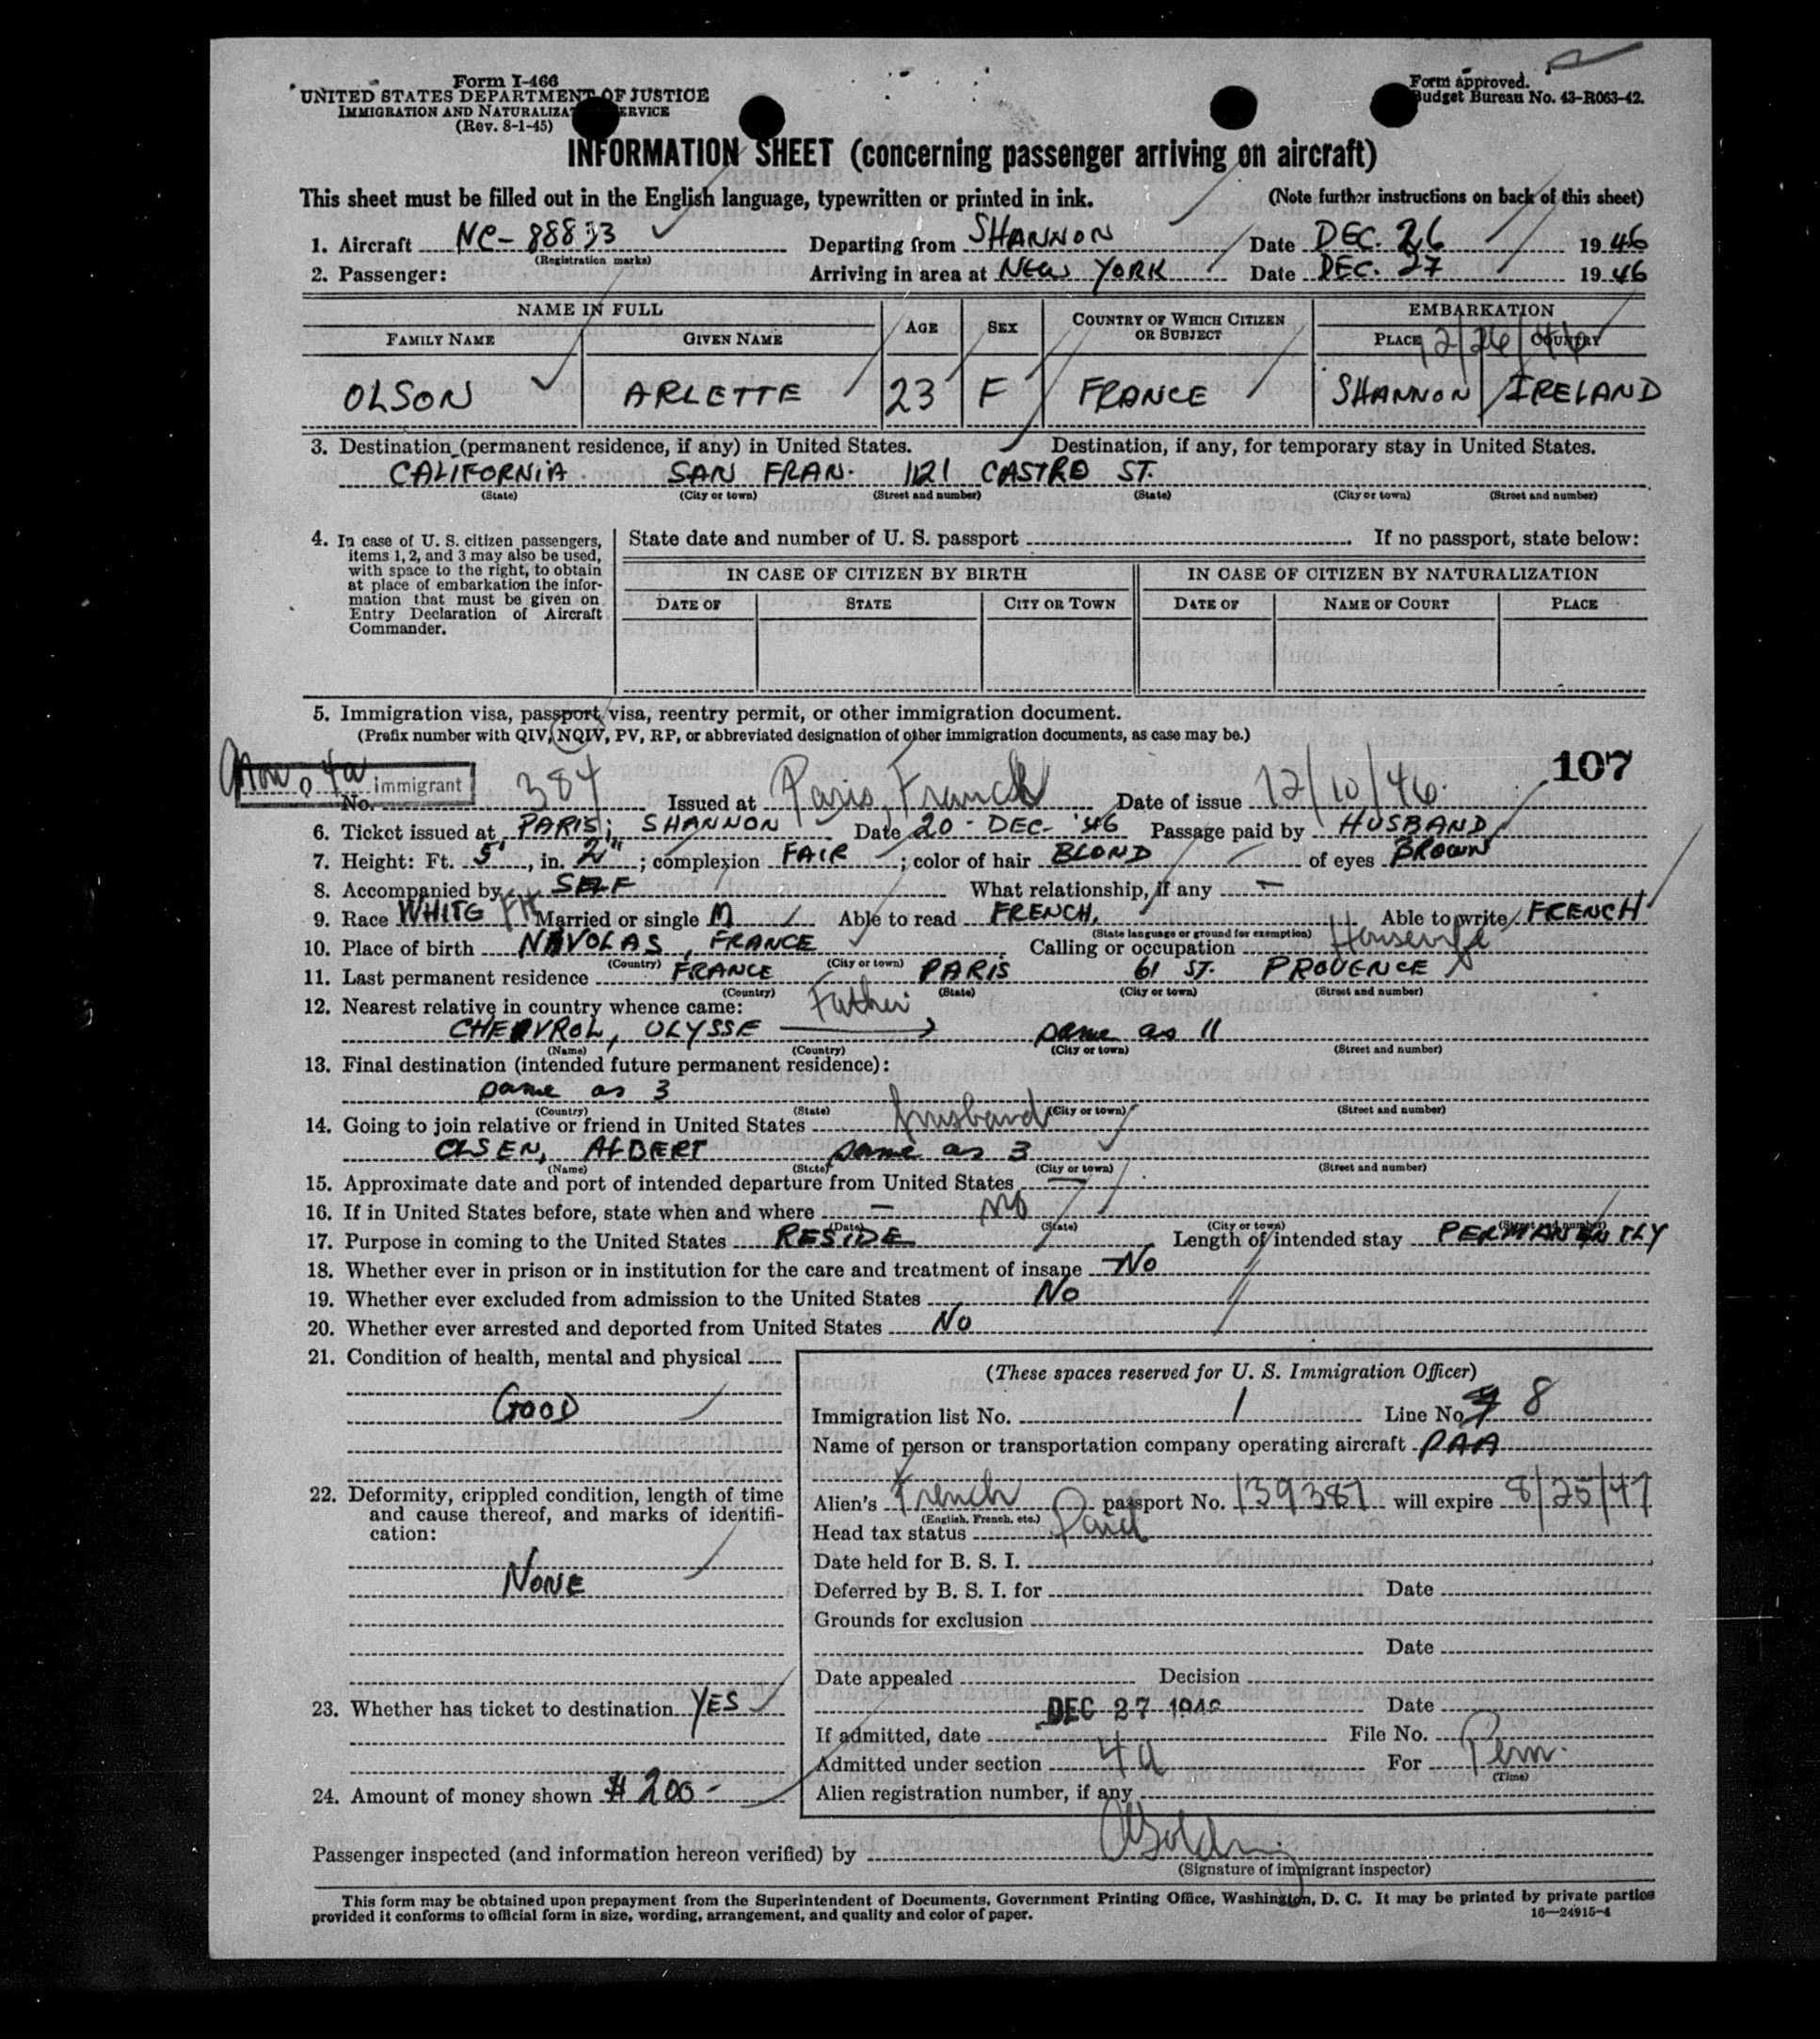 Form I-466
UNITED STATES DEPARTMENT OF JUSTICE
IMMIGRATION AND NATURALIZATION SERVICE
(Rev. 8-1-45)
Form approved.
Budget Bureau No. 43-R063-42.
INFORMATION SHEET (concerning passenger arriving on aircraft)
This sheet must be filled out in the English language, typewritten or printed in ink. (Note further instructions on back of this sheet)
1. Aircraft NC-88833 Departing from SHANNON Date DEC. 26 1946
(Registration marks)
2. Passenger: Arriving in area at NEW YORK Date DEC. 27 1946
NAME IN FULL AGE SEX COUNTRY OF WHICH CITIZEN OR SUBJECT EMBARKATION
FAMILY NAME GIVEN NAME PLACE COUNTRY 12/26/46
OLSON ARLETTE 23 F FRANCE SHANNON IRELAND
3. Destination (permanent residence, if any) in United States. Destination, if any, for temporary stay in United States.
CALIFORNIA SAN FRAN. 1121 CASTRO ST.
(State) (City or town) (Street and number) (State) (City or town) (Street and number)
4. In case of U. S. citizen passengers, items 1, 2, and 3 may also be used, with space to the right, to obtain at place of embarkation the information that must be given on Entry Declaration of Aircraft Commander.
State date and number of U. S. passport If no passport, state below:
IN CASE OF CITIZEN BY BIRTH IN CASE OF CITIZEN BY NATURALIZATION
DATE OF STATE CITY OR TOWN DATE OF NAME OF COURT PLACE
5. Immigration visa, passport visa, reentry permit, or other immigration document.
(Prefix number with QIV, NQIV, PV, RP, or abbreviated designation of other immigration documents, as case may be.)
107
Non Q 4a immigrant
No. 384 Issued at Paris, France Date of issue 12/10/46
6. Ticket issued at PARIS; SHANNON Date 20 - DEC - '46 Passage paid by HUSBAND
7. Height: Ft. 5', in. 2"; complexion FAIR; color of hair BLOND of eyes BROWN
8. Accompanied by SELF What relationship, if any —
9. Race WHITE FR Married or single M Able to read FRENCH, Able to write FRENCH
(State language or ground for exemption)
10. Place of birth NAVOLAS, FRANCE Calling or occupation Housewife
(Country) (City or town)
11. Last permanent residence FRANCE PARIS 61 ST. PROVENCE
(Country) (State) (City or town) (Street and number)
12. Nearest relative in country whence came: Father
CHEVROL, ULYSSE same as 11
(Name) (Country) (City or town) (Street and number)
13. Final destination (intended future permanent residence):
same as 3
(Country) (State) (City or town) (Street and number)
14. Going to join relative or friend in United States husband
OLSEN, ALBERT same as 3
(Name) (State) (City or town) (Street and number)
15. Approximate date and port of intended departure from United States —
16. If in United States before, state when and where — no
(Date) (State) (City or town) (Street and number)
17. Purpose in coming to the United States RESIDE Length of intended stay PERMANENTLY
18. Whether ever in prison or in institution for the care and treatment of insane NO
19. Whether ever excluded from admission to the United States NO
20. Whether ever arrested and deported from United States NO
21. Condition of health, mental and physical
GOOD
22. Deformity, crippled condition, length of time and cause thereof, and marks of identification:
NONE
23. Whether has ticket to destination YES
24. Amount of money shown $ 200 -
(These spaces reserved for U. S. Immigration Officer)
Immigration list No. 1 Line No. 8
Name of person or transportation company operating aircraft PAA
Alien's French passport No. 139387 will expire 8/25/47
(English, French, etc.)
Head tax status Paid
Date held for B. S. I.
Deferred by B. S. I. for Date
Grounds for exclusion
Date
Date appealed Decision
Date
If admitted, date DEC 27 1946 File No.
Admitted under section 4a For Perm.
(Time)
Alien registration number, if any
Passenger inspected (and information hereon verified) by
(Signature of immigrant inspector)
This form may be obtained upon prepayment from the Superintendent of Documents, Government Printing Office, Washington, D. C. It may be printed by private parties
provided it conforms to official form in size, wording, arrangement, and quality and color of paper. 16—24915-4